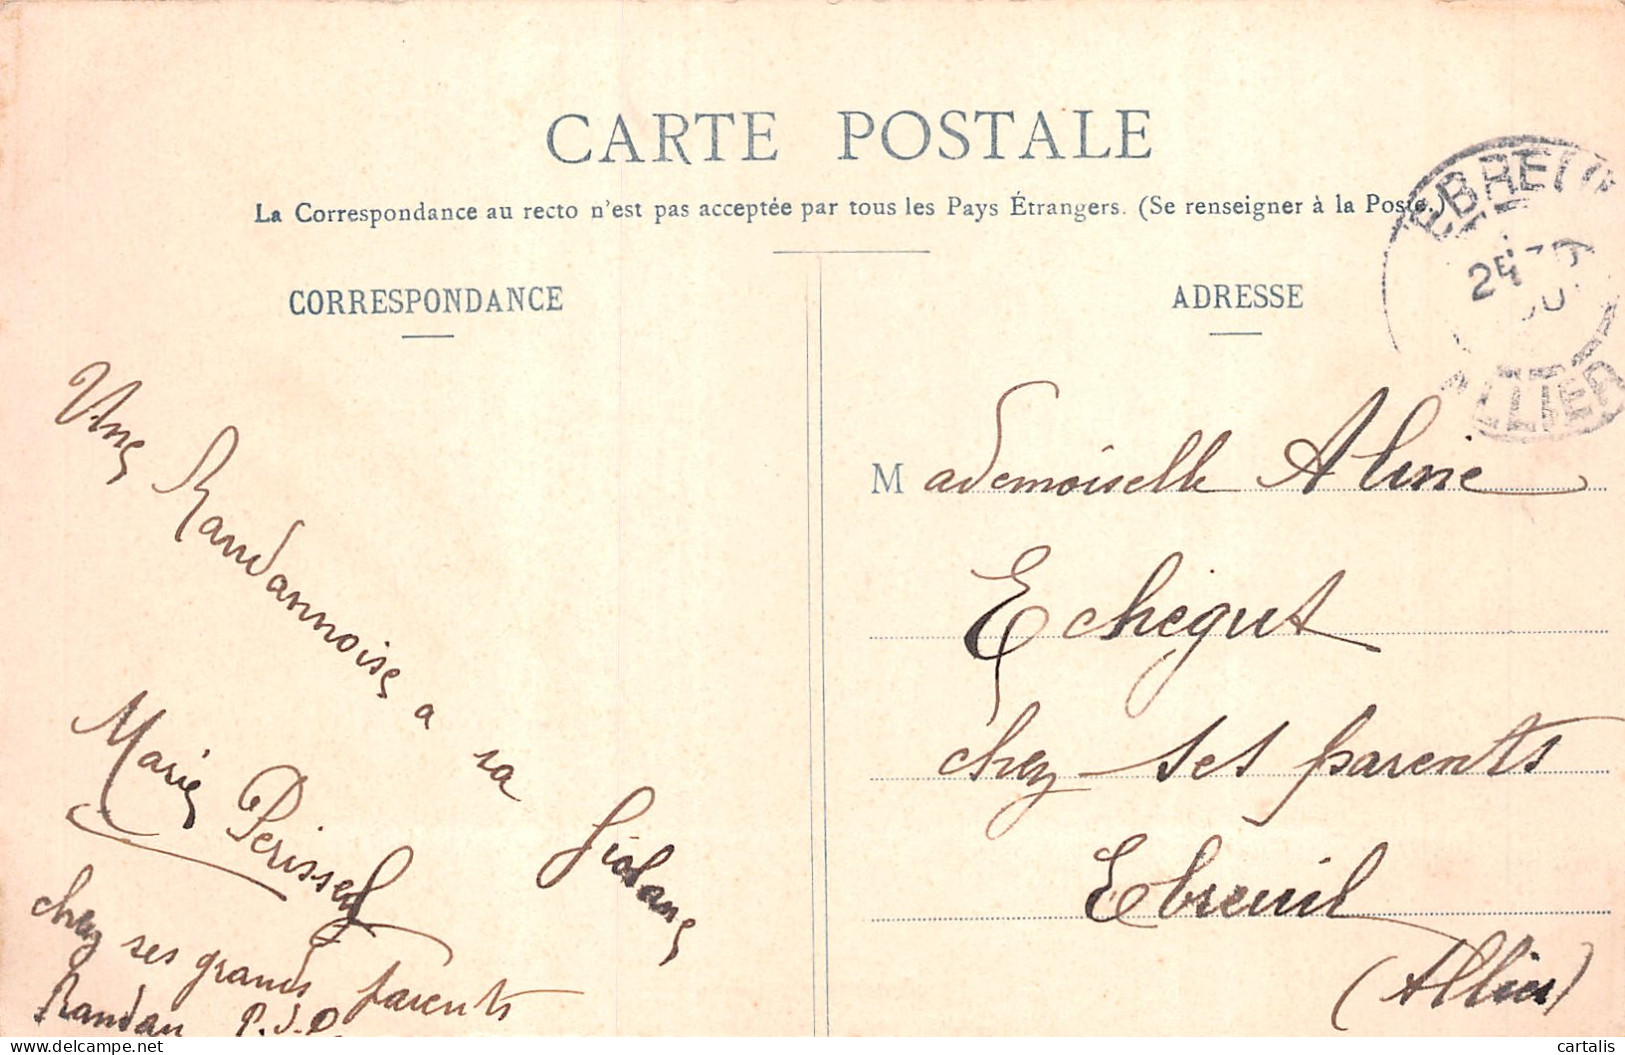 CARTE POSTALE
La Correspondance au recto n'est pas acceptée par tous les Pays Étrangers. (Se renseigner à la Poste.)
CORRESPONDANCE
Une Randannoise a sa
Marie
chez ses grands parents
Randan P.-D.
ADRESSE
Mademoiselle Aline
Echegut
chez ses parents
Ebreuil
(Allier)
EBREUIL
ALLIER
delcampe.net
cartalis